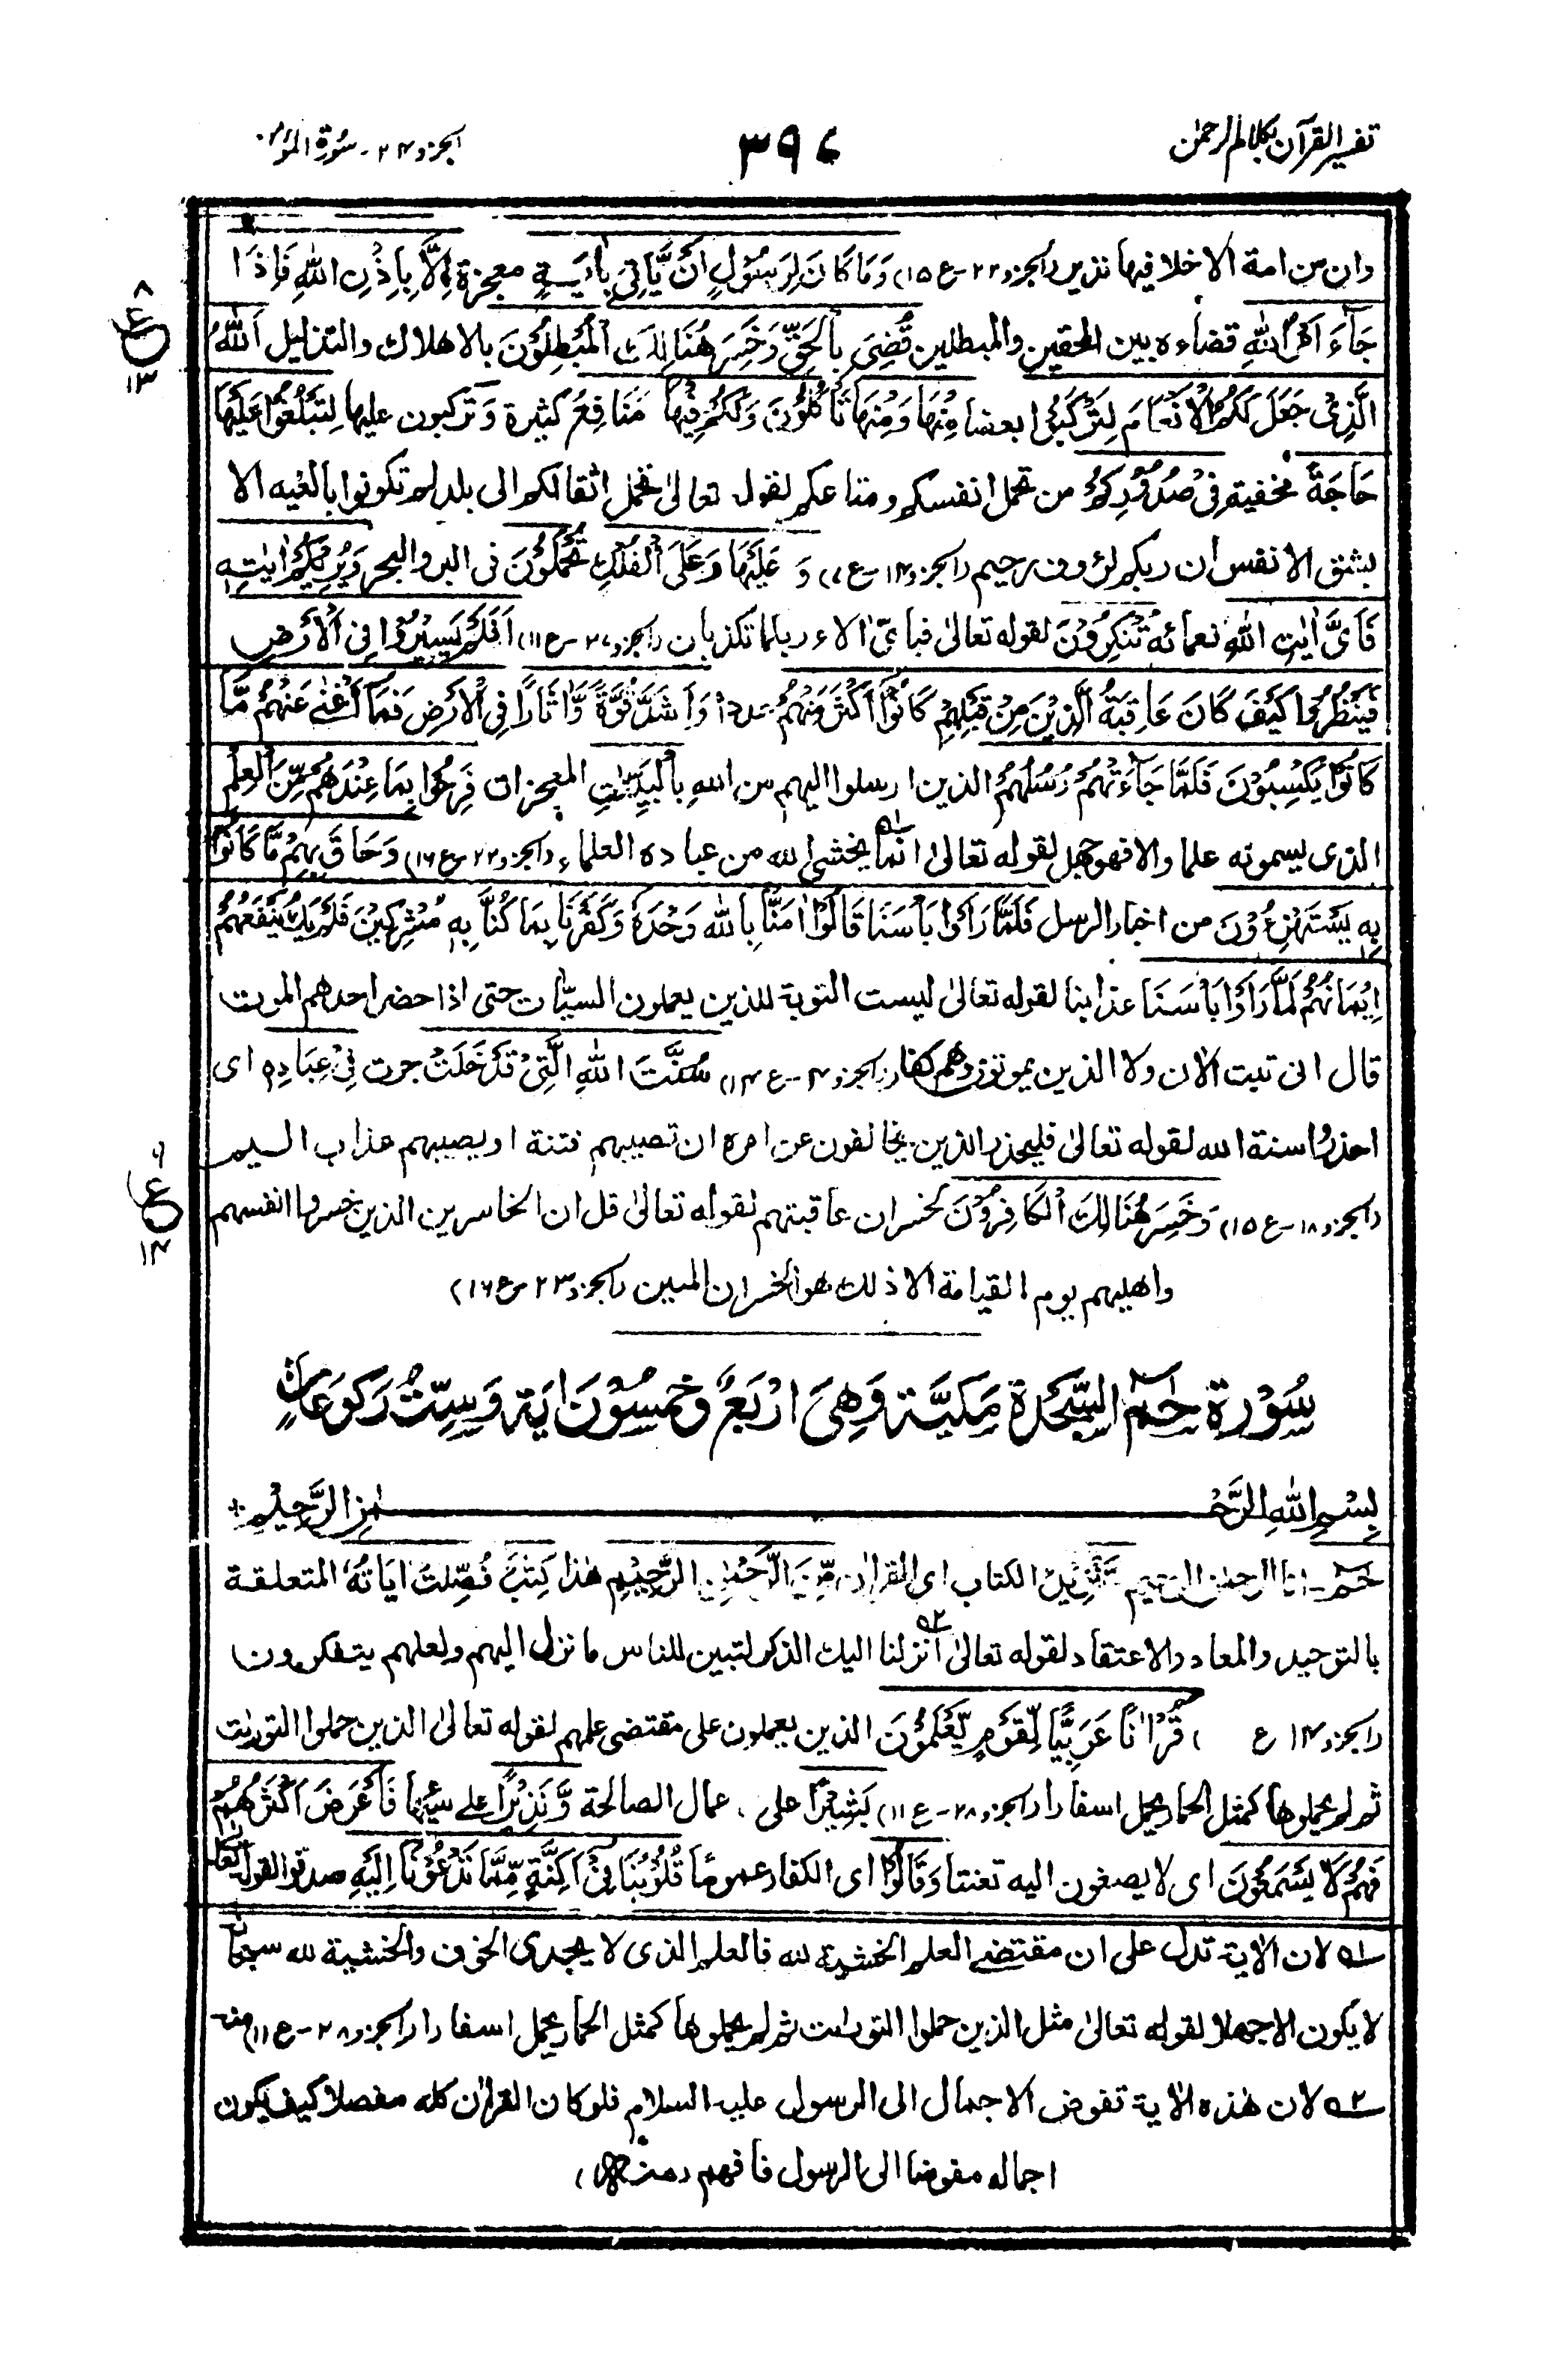 تفسير القرآن بكلام الرحمٰن
٣٩٧
الجزو ٢٤ - سورة المؤمن
وان من امة الا خلا فيها نذير (الجزو ٢٢ - ع ١٥) وَمَا كَانَ لِرَسُوْلٍ اَنْ يَّاْتِيَ بِاٰيَةٍ معجزة اِلَّا بِاِذْنِ اللّٰهِ فَاِذَا
جَآءَ اَمْرُ اللّٰهِ قضاءه بين المحقين والمبطلين قُضِيَ بِالْحَقِّ وَخَسِرَ هُنَالِكَ الْمُبْطِلُوْنَ بالاهلاك والتذليل اَللّٰهُ
الَّذِيْ جَعَلَ لَكُمُ الْاَنْعَامَ لِتَرْكَبُوْا بعضا مِنْهَا وَمِنْهَا تَاْكُلُوْنَ وَلَكُمْ فِيْهَا مَنَافِعُ كثيرة وَ تركبون عليها لِتَبْلُغُوْا عَلَيْهَا
حَاجَةً مخفية فِيْ صُدُوْرِكُمْ من تحمل انفسكم ومتاعكم لقوله تعالىٰ تحمل اثقالكم الى بلد لم تكونوا بالغيه الا
بشق الانفس ان ربكم لرؤوف رحيم (الجزو ١٤ - ع ٧) وَ عَلَيْهَا وَعَلَى الْفُلْكِ تُحْمَلُوْنَ فى البر والبحر وَيُرِيْكُمْ اٰيٰتِهٖ
فَاَيَّ اٰيٰتِ اللّٰهِ نعمائه تُنْكِرُوْنَ لقوله تعالىٰ فباىّ الاء ربكما تكذبان (الجزو ٢٧ - ع ١١) اَفَلَمْ يَسِيْرُوْا فِي الْاَرْضِ
فَيَنْظُرُوْا كَيْفَ كَانَ عَاقِبَةُ الَّذِيْنَ مِنْ قَبْلِهِمْ كَانُوْا اَكْثَرَ مِنْهُمْ عددا وَاَشَدَّ قُوَّةً وَّاٰثَارًا فِي الْاَرْضِ فَمَا اَغْنٰى عَنْهُمْ مَّا
كَانُوْا يَكْسِبُوْنَ فَلَمَّا جَآءَتْهُمْ رُسُلُهُمْ الذين ارسلوا اليهم من الله بِالْبَيِّنٰتِ المعجزات فَرِحُوْا بِمَا عِنْدَهُمْ مِّنَ الْعِلْمِ
الذى يسمونه علما والا فهو جهل لقوله تعالىٰ انما ١ه يخشى الله من عباده العلماء (الجزو ٢٢ - ع ١٦) وَحَاقَ بِهِمْ مَّا كَانُوْا
بِهٖ يَسْتَهْزِءُوْنَ من اخبار الرسل فَلَمَّا رَاَوْا بَاْسَنَا قَالُوْا اٰمَنَّا بِاللّٰهِ وَحْدَهٗ وَكَفَرْنَا بِمَا كُنَّا بِهٖ مُشْرِكِيْنَ فَلَمْ يَكُ يَنْفَعُهُمْ
اِيْمَانُهُمْ لَمَّا رَاَوْا بَاْسَنَا عذابنا لقوله تعالىٰ ليست التوبة للذين يعملون السيئات حتى اذا حضر احدهم الموت
قال انى تبت الاٰن ولا الذين يموتون وهم كفار (الجزو ٤ - ع ١٤) سُنَّتَ اللّٰهِ الَّتِيْ قَدْ خَلَتْ جرت فِيْ عِبَادِهٖ اى
احذروا سنة الله لقوله تعالىٰ فليحذر الذين يخالفون عن امره ان تصيبهم فتنة او يصيبهم عذاب اليم
(الجزو ١٨ - ع ١٥) وَخَسِرَ هُنَالِكَ الْكَافِرُوْنَ لخسران عاقبتهم لقوله تعالىٰ قل ان الخاسرين الذين خسروا انفسهم
واهليهم يوم القيامة الا ذلك هو الخسران المبين (الجزو ٢٣ - ع ١٦)
سُوْرَة حٰمٓ السَّجْدَة مَكِيَّة وَهِيَ اَرْبَعٌ وَّخَمْسُوْنَ اٰيَة وَسِتُّ رَكُوْعَاتٍ
بِسْمِ اللّٰهِ الرَّحْمٰنِ الرَّحِيْمِ
حٰمٓ - انا الرحمٰن الرحيم تَنْزِيْلُ الكتاب اى القراٰن مِّنَ الرَّحْمٰنِ الرَّحِيْمِ هٰذا كِتٰبٌ فُصِّلَتْ اٰيَاتُهٗ المتعلقة
بالتوحيد والمعاد والاعتقاد لقوله تعالىٰ ٢ه انزلنا اليك الذكر لتبين للناس ما نزل اليهم ولعلهم يتفكرون
(الجزو ١٤ ع ) قُرْاٰنًا عَرَبِيًّا لِّقَوْمٍ يَّعْلَمُوْنَ الذين يعملون على مقتضى علمهم لقوله تعالىٰ الذين حملوا التورٰىت
ثم لم يحملوها كمثل الحمار يحمل اسفارا (الجزو ٢٨ - ع ١١) بَشِيْرًا على اعمال الصالحة وَّنَذِيْرًا على سيئها فَاَعْرَضَ اَكْثَرُهُمْ
فَهُمْ لَا يَسْمَعُوْنَ اى لا يصغون اليه تعنتا وَقَالُوْا اى الكفار عموما قُلُوْبُنَا فِيْ اَكِنَّةٍ مِّمَّا تَدْعُوْنَا اِلَيْهِ صدقوا لقوله تعالىٰ
١ه لان الاٰية تدل على ان مقتضى العلم الخشية لله فالعلم الذى لا يجدى الخوف والخشية لله سبحانه
لا يكون الا جهلا لقوله تعالىٰ مثل الذين حملوا التورٰىت ثم لم يحملوها كمثل الحمار يحمل اسفارا (الجزو ٢٨ - ع ١١) منه
٢ه لان هٰذه الاٰية تفوض الاجمال الى الرسول عليه السلام فلو كان القراٰن كله مفصلا كيف يكون
اجماله مفوضا الى الرسول فافهم (منه)
٨
ع
١٣
٩
ع
١٤